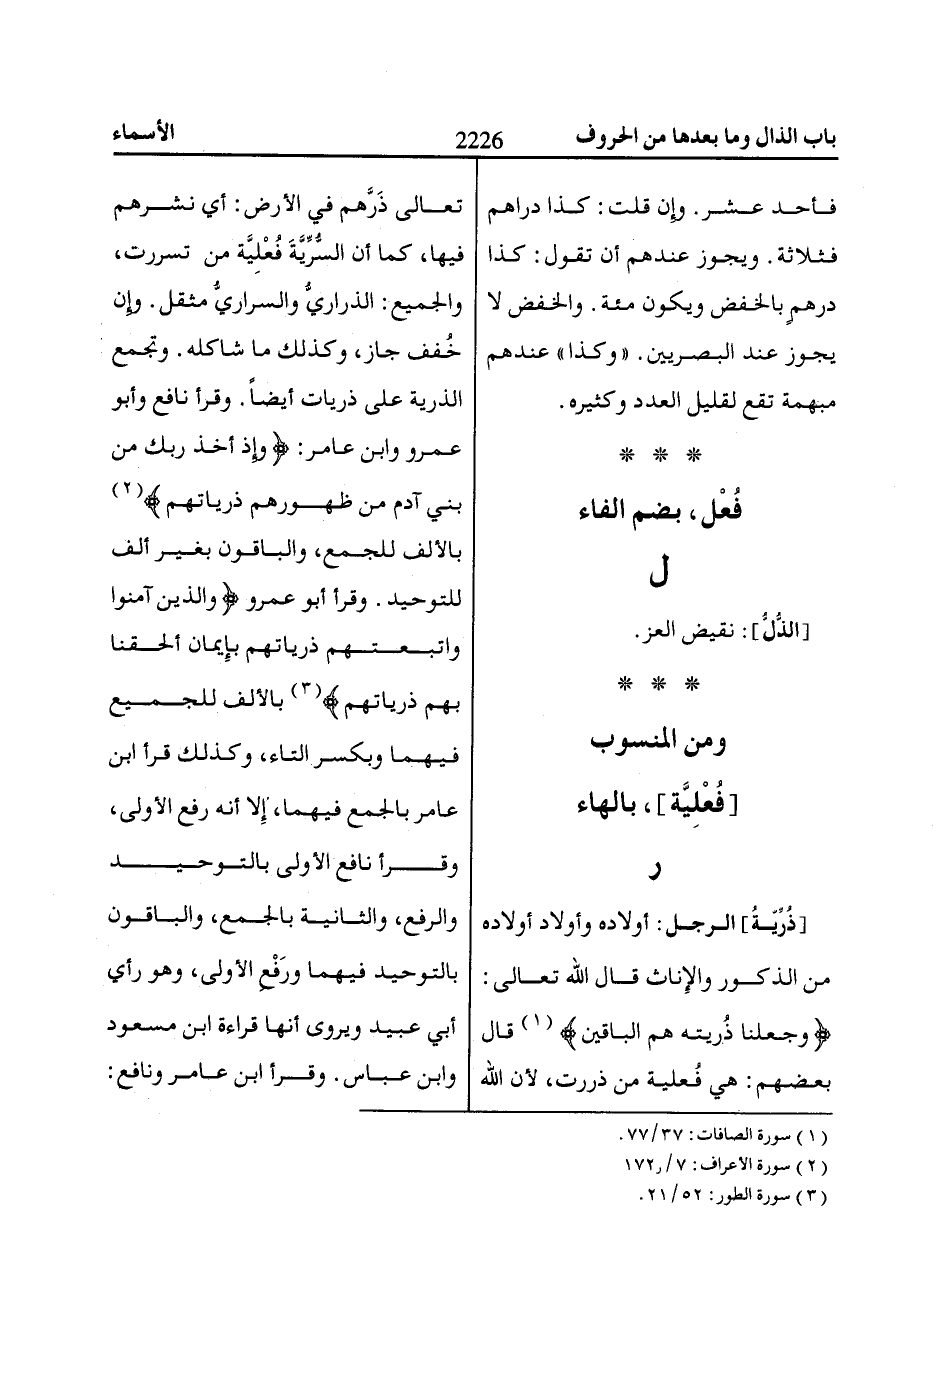 باب الذال وما بعدها من الحروف 2226 الأسماء
فأحد عشر. وإن قلت: كذا دراهم
فثلاثة. ويجوز عندهم أن تقول: كذا
درهمٍ بالخفض ويكون مئة. والخفض لا
يجوز عند البصريين. «وكذا» عندهم
مبهمة تقع لقليل العدد وكثيره.
* * *
فُعْل، بضم الفاء
ل
[الذُّلُّ]: نقيض العز.
* * *
ومن المنسوب
[فُعْلِيَّة]، بالهاء
ر
[ذُرِّيَّةُ] الرجل: أولاده وأولاد أولاده
من الذكور والإناث قال الله تعالى:
﴿وجعلنا ذُريته هم الباقين﴾(١) قال
بعضهم: هي فُعلية من ذررت، لأن الله
تعالى ذَرَّهم في الأرض: أي نشرهم
فيها، كما أن السُّرِّيَّةَ فُعْلِيَّة من تسررت،
والجميع: الذراريُّ والسراريُّ مثقل. وإن
خُفف جاز، وكذلك ما شاكله. وتجمع
الذرية على ذريات أيضاً. وقرأ نافع وأبو
عمرو وابن عامر: ﴿وإذ أخذ ربك من
بني آدم من ظهورهم ذرياتهم﴾(٢)
بالألف للجمع، والباقون بغير ألف
للتوحيد. وقرأ أبو عمرو ﴿والذين آمنوا
واتبعتهم ذرياتهم بإيمان ألحقنا
بهم ذرياتهم﴾(٣) بالألف للجميع
فيهما وبكسر التاء، وكذلك قرأ ابن
عامر بالجمع فيهما، إلا أنه رفع الأولى،
وقرأ نافع الأولى بالتوحيد
والرفع، والثانية بالجمع، والباقون
بالتوحيد فيهما ورَفْعِ الأولى، وهو رأي
أبي عبيد ويروى أنها قراءة ابن مسعود
وابن عباس. وقرأ ابن عامر ونافع:
(١) سورة الصافات: ٧٧/٣٧.
(٢) سورة الأعراف: ٧/ ١٧٢
(٣) سورة الطور: ٢١/٥٢.